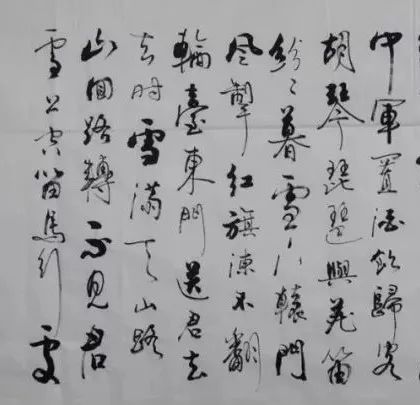 中軍置酒飲歸客
胡琴琵琶與羌笛
紛々暮雪下轅門
風掣紅旗凍不翻
輪臺東門送君去
去時雪滿天山路
山回路轉不見君
雪上空留馬行處